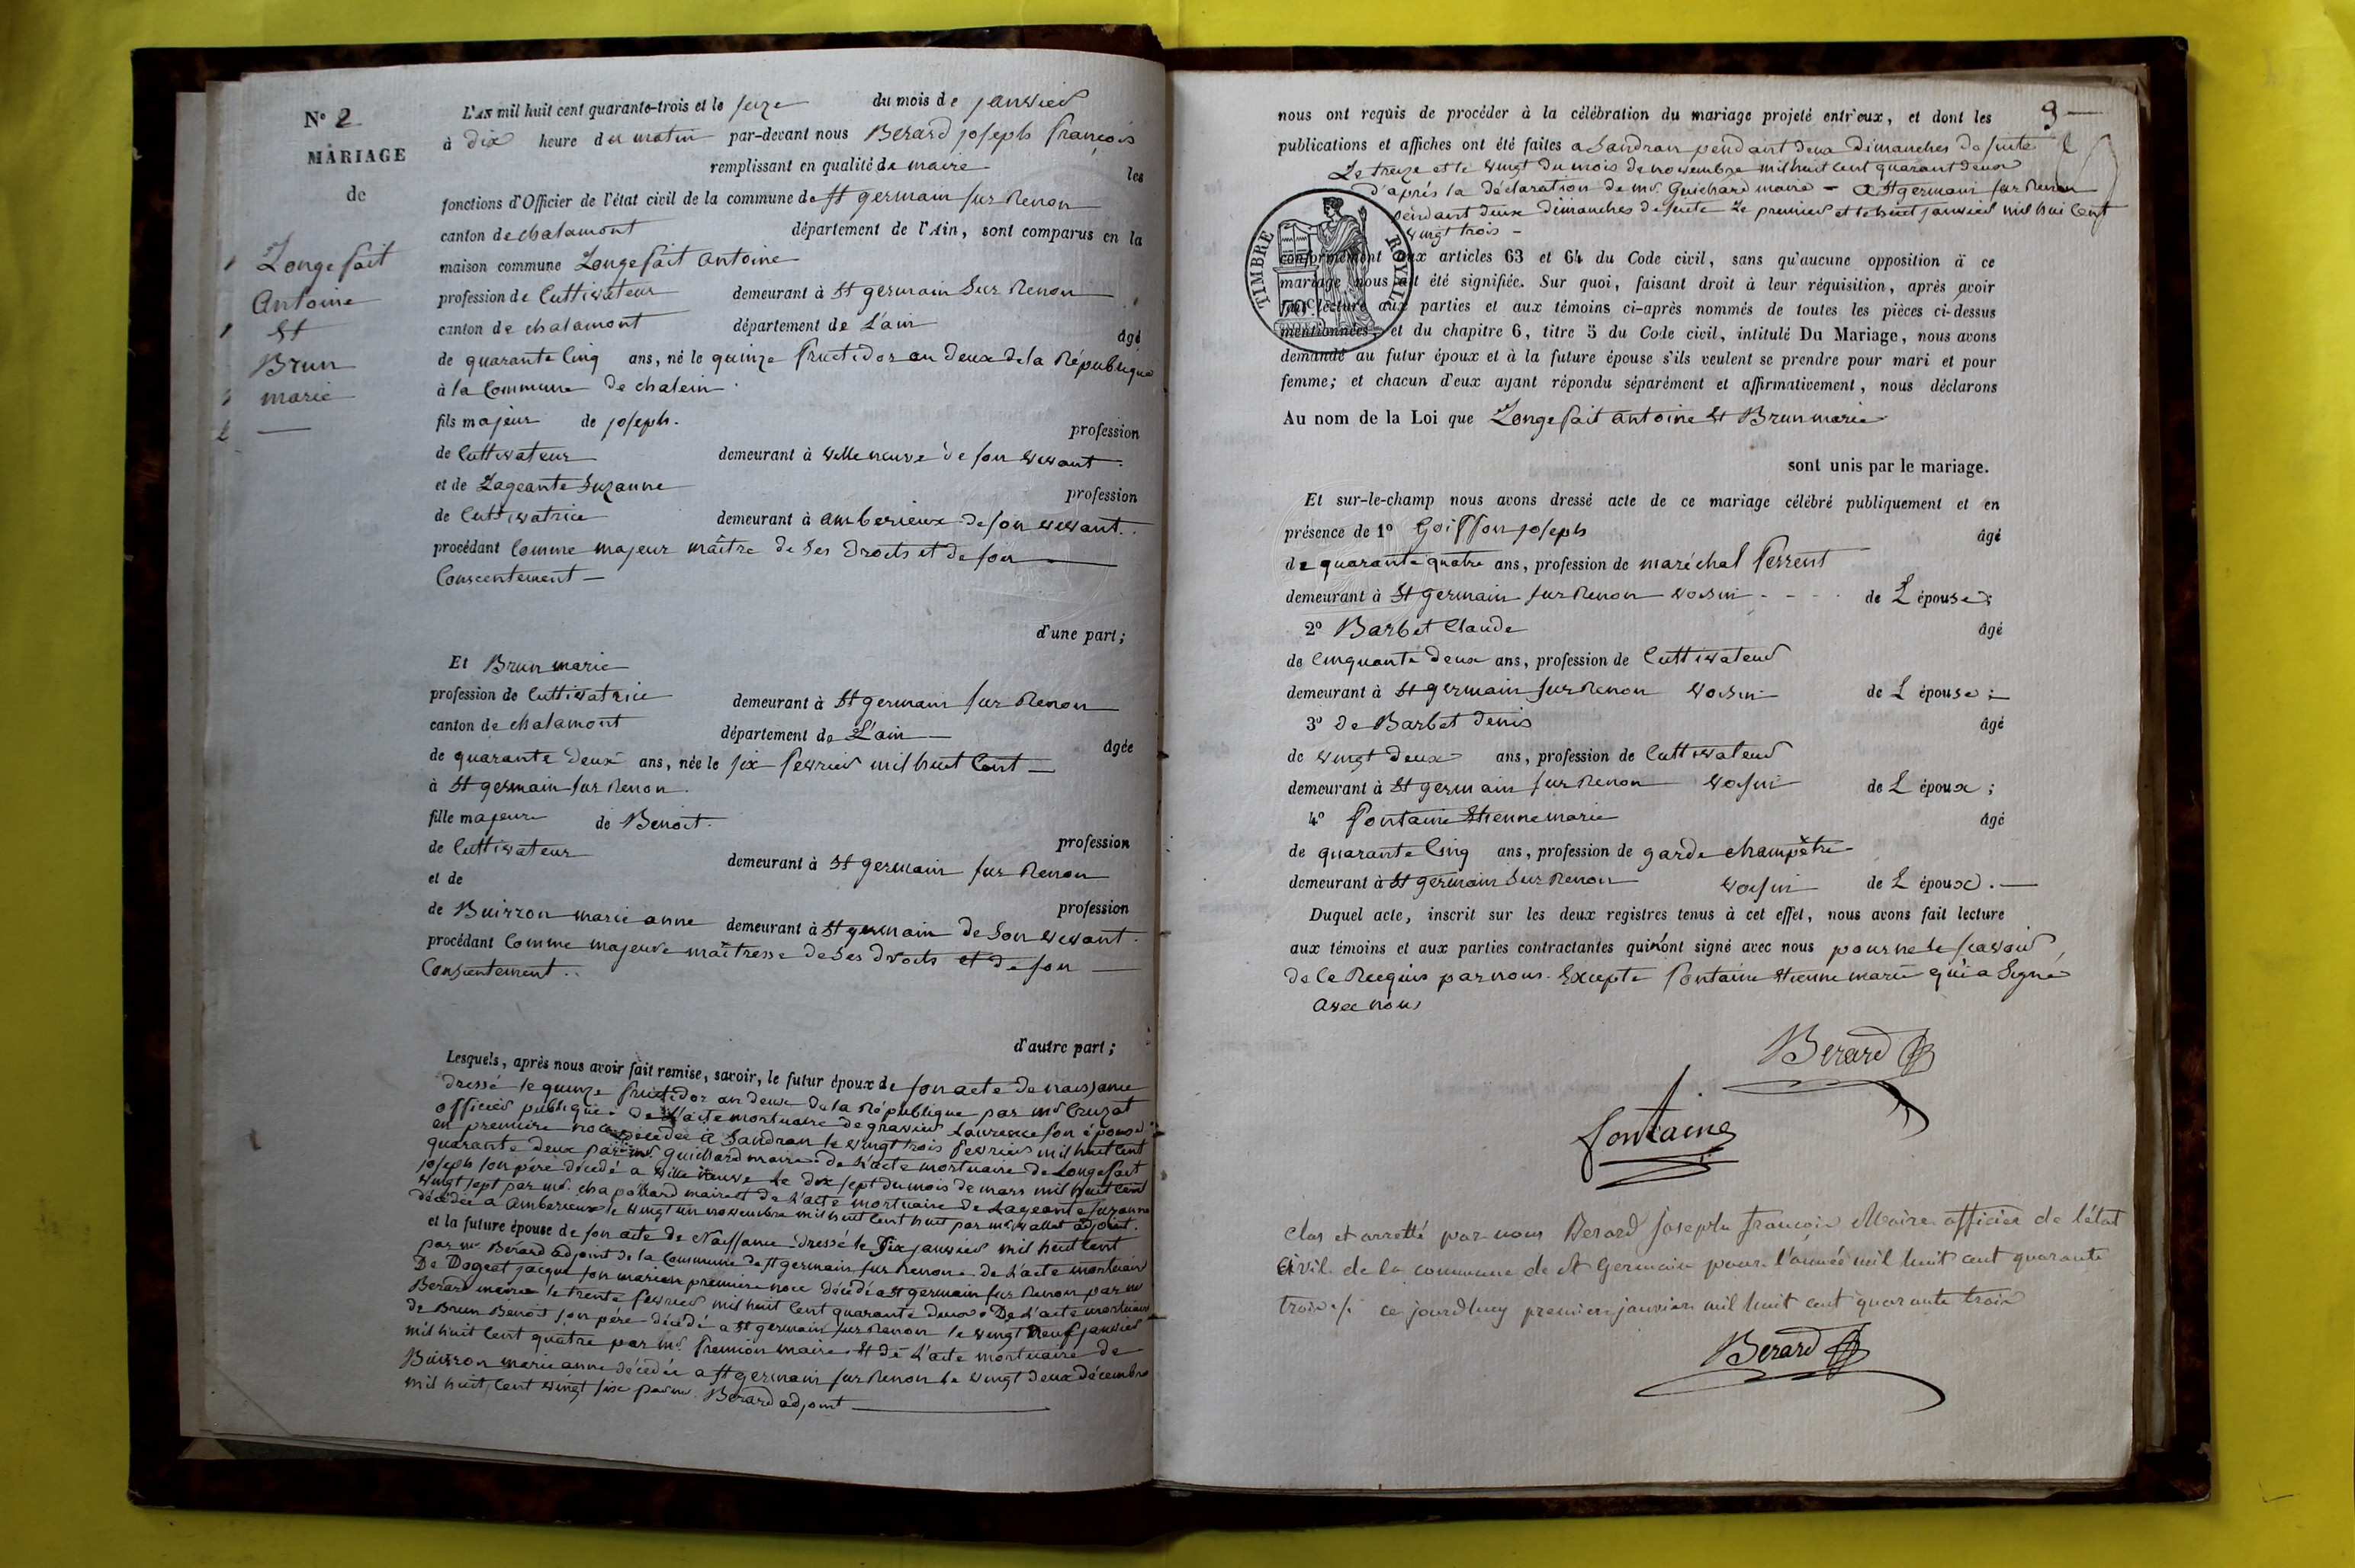 N° 2
MARIAGE
de
Longefait
Antoine
Et
Brun
marie
L'an mil huit cent quarante-trois et le seize du mois de janvier
à dix heure du matin par-devant nous Berard joseph françois
remplissant en qualité de maire les
fonctions d'Officier de l'état civil de la commune de st germain sur Renon
canton de chalamont département de l'Ain, sont comparus en la
maison commune Longefait antoine
profession de Cultivateur demeurant à St germain Sur Renon
canton de chalamont département de L'ain âgé
de quarante Cinq ans, né le quinze fructidor an deux de la République
à la Commune de chalein
fils majeur de joseph. profession
de Cultivateur demeurant à Villeneuve de son vivant
et de Lageante Suzanne profession
de Cultivatrice demeurant à amberieux de son vivant.
procédant Comme majeur maître de Ses Droits et de son
Consentement
d'une part;
Et Brun marie
profession de Cultivatrice demeurant à St germain sur Renon
canton de chalamont département de L'ain âgée
de quarante deux ans, née le six fevrier mil huit Cent
à St germain sur Renon
fille majeure de Benoit. profession
de Cultivateur demeurant à St germain sur Renon
et de profession
de Buirron marie anne demeurant à St germain de Son vivant
procédant Comme majeure maîtresse de Ses droits et de son
Consentement..
d'autre part;
Lesquels, après nous avoir fait remise, savoir, le futur époux de son acte de naissance
dressé le quinze fructidor an deux de la République par mr Cruzat
officier publique. De L'acte mortuaire de gravier Laurence son épouse
en premiere noce décédée à Sandran le vingt trois fevrier mil huit Cent
quarante deux par mr guichard maire. de L'acte mortuaire de Longefait
joseph son père décédé a Ville neuve Le dix sept du mois de mars mil huit Cent
vingt sept par mr. chapollard maire et de L'acte mortuaire de Lageante suzanne
décédée a Amberieux le vingt un novembre mil huit Cent huit par mr vallet adjoint.
et la future épouse de son acte de Naissance dressé le Six janvier mil huit Cent
par mr Berard adjoint de la Commune de St germain sur renon. de L'acte mortuaire
De Dogeat jacque son mari en premiere noce décédé a St germain sur Renon par mr
Berard maire le trente fevrier mil huit Cent quarante deux. De L'acte mortuaire
de Brun Benoit son père décédé a St germain sur Renon le vingt neuf janvier
mil huit Cent quatre par mr. fremion maire. Et de L'acte mortuaire de
Buirron marie anne décédée a St germain sur Renon le vingt deux décembre
mil huit Cent vingt six par mr. Berard adjoint
9
nous ont requis de procéder à la célébration du mariage projeté entr'eux, et dont les
publications et affiches ont été faites a Sandran pendant deux dimanches de suite
Le treize et le vingt du mois de novembre mil huit Cent quarant deux
d'après la déclaration de mr. Guichard maire - a St germain sur Renon
pendant deux dimanches de suite Le premier et le huit janvier mil hui Cent
vingt trois -
TIMBRE ROYAL
conformément aux articles 63 et 64 du Code civil, sans qu'aucune opposition à ce
mariage nous ait été signifiée. Sur quoi, faisant droit à leur réquisition, après avoir
fait lecture aux parties et aux témoins ci-après nommés de toutes les pièces ci-dessus
mentionnées, et du chapitre 6, titre 5 du Code civil, intitulé Du Mariage, nous avons
demandé au futur époux et à la future épouse s'ils veulent se prendre pour mari et pour
femme; et chacun d'eux ayant répondu séparément et affirmativement, nous déclarons
Au nom de la Loi que Longefait antoine Et Brun marie
sont unis par le mariage.
Et sur-le-champ nous avons dressé acte de ce mariage célébré publiquement et en
présence de 1° Goiffon joseph âgé
de quarante quatre ans, profession de maréchal ferrent
demeurant à St germain sur Renon voisin de L épouse;
2° Barbet Claude âgé
de Cinquante deux ans, profession de Cultivateur
demeurant à St germain sur Renon voisin de L épouse;
3° de Barbet Denis âgé
de vingt deux ans, profession de Cultivateur
demeurant à St germain sur Renon voisin de L époux;
4° fontaine Etienne marie âgé
de quarante Cinq ans, profession de garde champêtre
demeurant à St germain Sur Renon voisin de L époux.
Duquel acte, inscrit sur les deux registres tenus à cet effet, nous avons fait lecture
aux témoins et aux parties contractantes qui n'ont signé avec nous pour ne le scavoir,
de Ce Reequis par nous. Excepte fontaine Etienne marie qui a Signé
avec nous
Berard
fontaine
Clos et arretté par nous Berard joseph françois Maire officier de l'état
civil de la commune de St Germain pour l'année mil huit cent quarante
trois ce jourdhuy premier janvier mil huit cent quarante trois
Berard